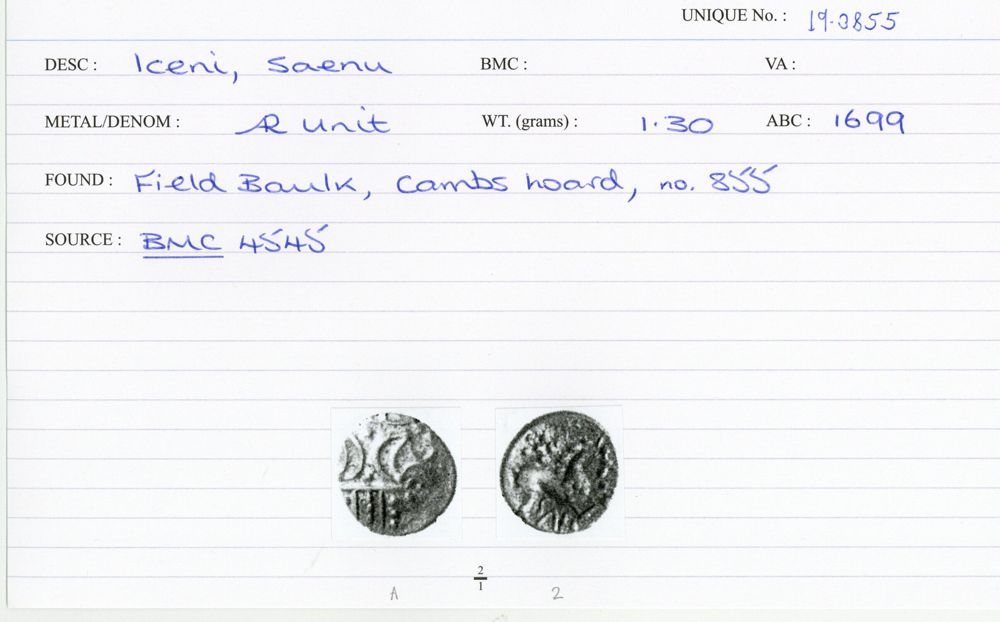 UNIQUE No. : 19.0855
DESC : Iceni, Saenu BMC : VA :
METAL/DENOM : AR Unit WT. (grams) : 1.30 ABC : 1699
FOUND : Field Baulk, Cambs hoard, no. 855
SOURCE : BMC 4545
2
1
A 2